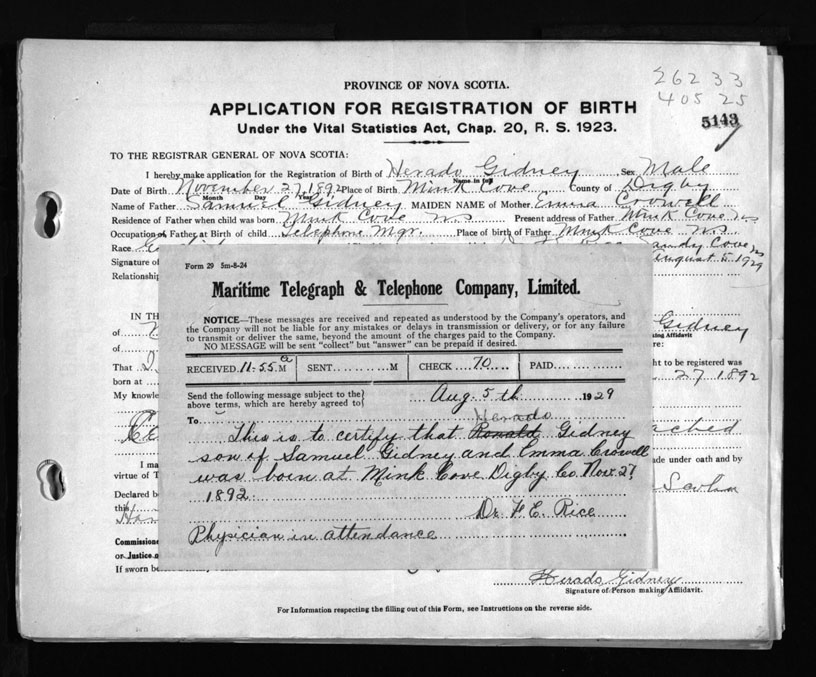 PROVINCE OF NOVA SCOTIA.
26233
40525
APPLICATION FOR REGISTRATION OF BIRTH
5143
Under the Vital Statistics Act, Chap. 20, R. S. 1923.
TO THE REGISTRAR GENERAL OF NOVA SCOTIA:
I hereby make application for the Registration of Birth of Herado Gidney Sex Male
Name in full
Date of Birth November 27 1892 Place of Birth Mink Cove County of Digby
Month Day Year
Name of Father Samuel Gidney MAIDEN NAME of Mother Emma Crowell
Residence of Father when child was born Mink Cove NS Present address of Father Mink Cove NS
Occupation of Father at Birth of child Telephone Mgr. Place of birth of Father Mink Cove NS
Race Sandy Cove NS
Signature of August 5 1929
Relationship
Form 29 5m-8-24
Maritime Telegraph & Telephone Company, Limited.
NOTICE—These messages are received and repeated as understood by the Company's operators, and
the Company will not be liable for any mistakes or delays in transmission or delivery, or for any failure
to transmit or deliver the same, beyond the amount of the charges paid to the Company.
NO MESSAGE will be sent "collect" but "answer" can be prepaid if desired.
RECEIVED 11.55 a M SENT M CHECK 70 PAID
Send the following message subject to the
above terms, which are hereby agreed to
Aug. 5th 1929
To
Herado
This is to certify that Ronald Gidney
son of Samuel Gidney and Emma Crowell
was born at Mink Cove Digby Co. Nov. 27
1892
Dr. F. E. Rice
Physician in attendance
IN TH
Gidney
of
making Affidavit
of
re:
That
ght to be registered was
born at 27 1892
My knowle
ached
I ma
ade under oath and by
virtue of T
Declared be
this
Commissione
or Justice o
If sworn be
Herado Gidney
Signature of Person making Affidavit.
For Information respecting the filling out of this Form, see Instructions on the reverse side.